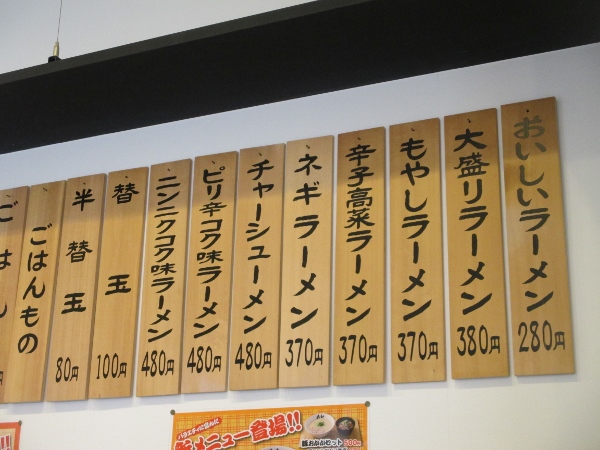 おいしいラーメン 280円
大盛りラーメン 380円
もやしラーメン 370円
辛子高菜ラーメン 370円
ネギラーメン 370円
チャーシューメン 480円
ピリ辛コク味ラーメン 480円
ニンニクコク味ラーメン 480円
替玉 100円
半替玉 80円
ごはんもの
ごはん
円
バラエティに富んだ
新メニュー登場!!
豚おかかセット 500円
!!